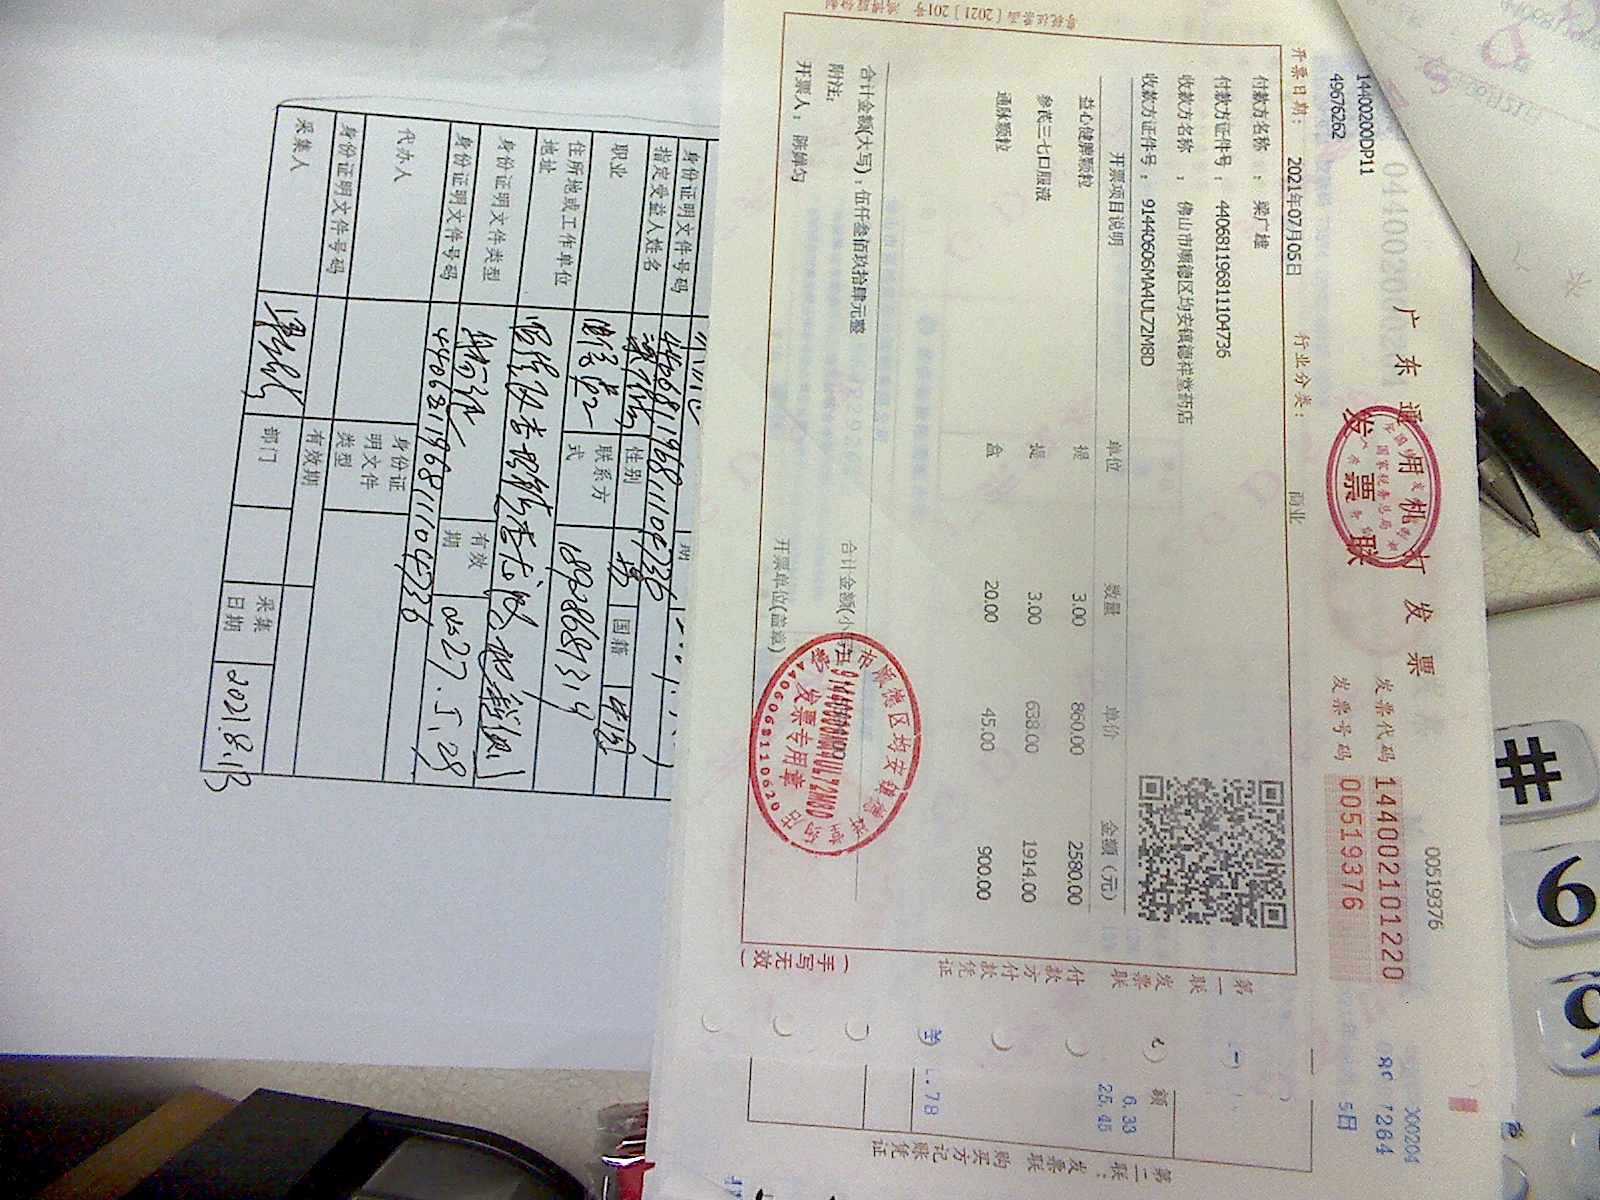 #
6
00519376
广东通用机打发票
国家税务总局
发票联
发票代码 144002101220
发票号码 00519376
14400200DP11
49676262
开票日期： 2021年07月05日 行业分类： 商业
付款方名称 ： 梁广雄
付款方证件号 ： 440681196811104736
收款方名称 ： 佛山市顺德区均安镇德祥堂药店
收款方证件号 ： 91440606MA4UL72M8D
开票项目说明 单位 数量 单价 金额（元）
益心健脾颗粒 提 3.00 860.00 2580.00
参芪三七口服液 提 3.00 638.00 1914.00
通脉颗粒 盒 20.00 45.00 900.00
合计金额(大写)：伍仟叁佰玖拾肆元整 合计金额(小写)：
附注：
开票人： 陈婵匀 开票单位(盖章)
佛山市顺德区均安镇德祥堂药店
91440606MA4UL72M8D
发票专用章
4406068110620
第一联 发票联 付款方付款凭证
(手写无效)
5日
额
6.33
25.45
¥ .78
第二联：发票联 购买方记账凭证
身份证明文件号码 440681196811104736
指定受益人姓名 性别 男 国籍 中国
职业 联系方式 18928681314
住所地或工作单位地址
身份证明文件类型 身份证 有效期 2027.5.29
身份证明文件号码 440681196811104736
代办人 身份证明文件类型
身份证明文件号码 有效期
采集人 部门 采集日期 2021.8.13